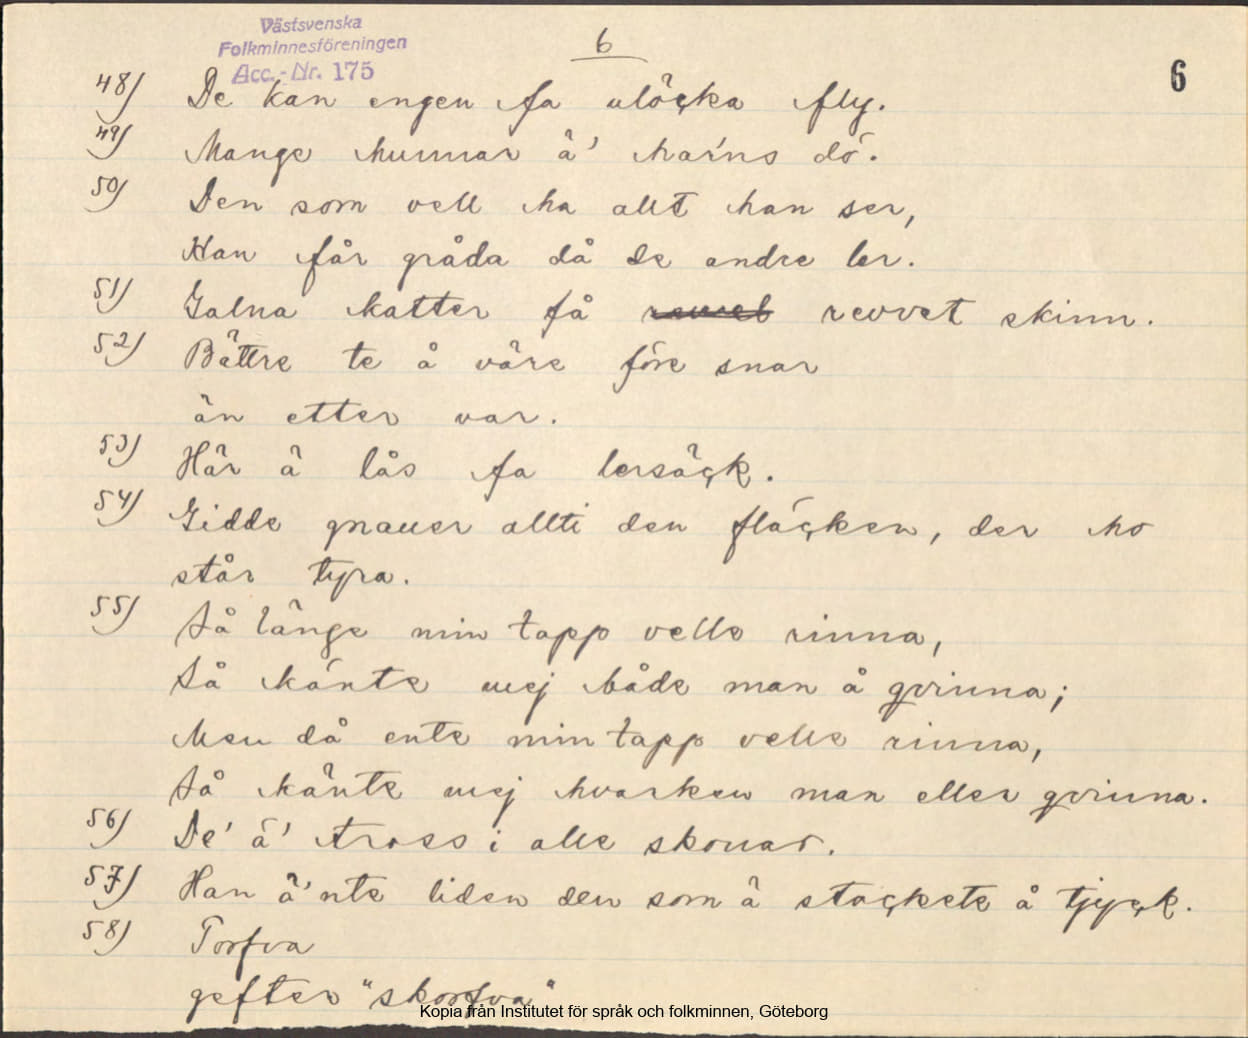 Västsvenska
Folkminnesföreningen
Acc.-Nr. 175
6
6
48) De kan engen fa ulöçka fly.
49) Mange hunnar ä' harns dö.
50) Den som vell ha allt han ser,
Han får gråda då de andre ler.
51) Galna katter få revvet skinn.
52) Bättre te å väre före snar
än etter var.
53) Här ä lås fa lersäçk.
54) Gidde gnauer allti den fläçken, der ho
står tyra.
55) Så länge min tapp velle rinna,
Så känte mej både man å qvinna;
Men då ente min tapp velle rinna,
Så känte mej hvarken man eller qvinna.
56) De' ä' tross i alle skouar.
57) Han ä'nte liden den som ä staçkete å tjyçk.
58) Torfva
gefter "skorfva"
Kopia från Institutet för språk och folkminnen, Göteborg